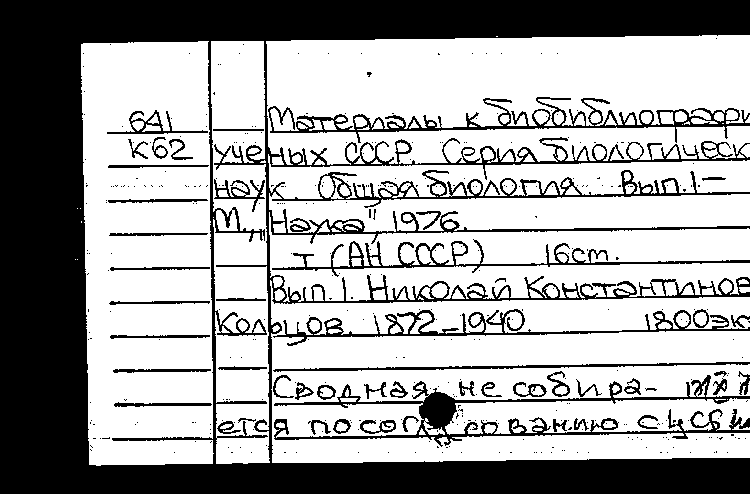 641 Материалы к биобиблиографи
К62 ученых СССР. Серия биологическ
наук. Общая биология. Вып.1–
М., „Наука", 1976.
т (АН СССР) 16 ст.
Вып.1. Николай Константинов
Кольцов. 1872–1940. 1800 эк
Сводная не собира-
ется по согласованию с ЦСБ